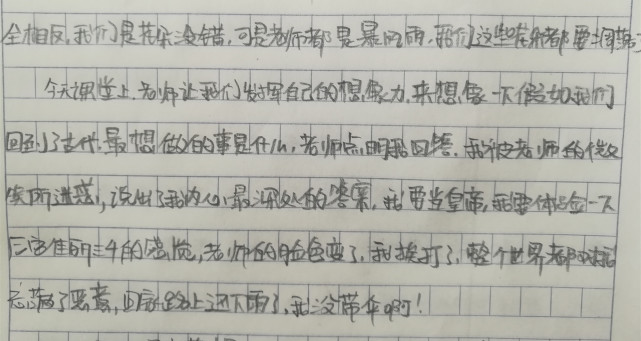 全相反，我们是花朵没错，可是老师都是暴风雨，我们这些花朵都要凋落了
今天课堂上，老师让我们发挥自己的想像力，来想像一下假如我们
回到了古代，最想做的事是什么，老师点明我回答，我被老师的微
笑所迷惑，说出了我内心最深处的答案，我要当皇帝，我要体验一下
三宫佳丽三千的感觉，老师的脸色变了，我挨打了，整个世界都对我
充满了恶意，回家路上还下雨了，我没带伞啊！